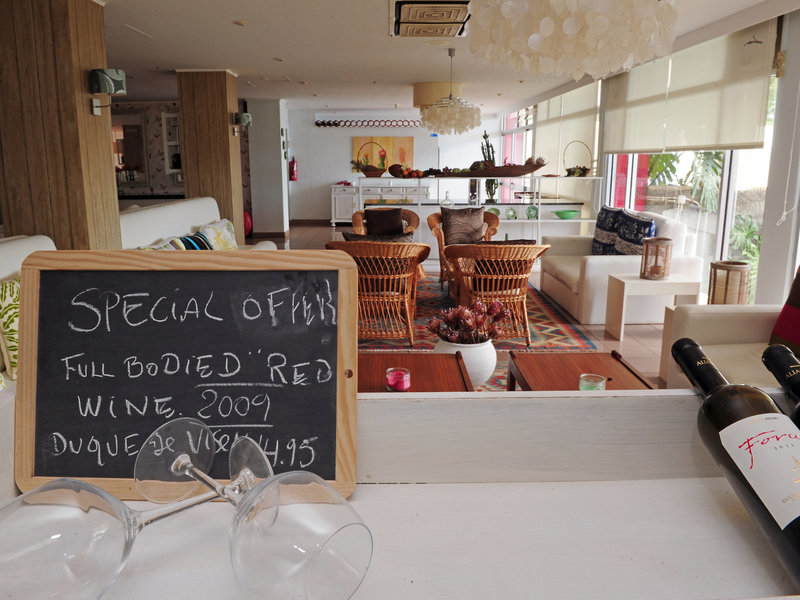 SPECIAL OFFER
FULL BODIED "RED
WINE. 2009
DUQUE De VISEU 14.95
ALIA
Fora
2011
ALIA